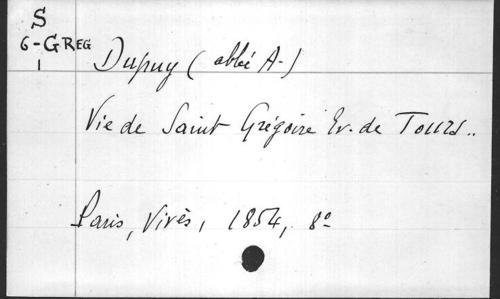 S
6-GREG
1
Dupuy (abbé A-)
Vie de Saint Grégoire Ev. de Tours..
Paris, Vivès, 1854, 8º